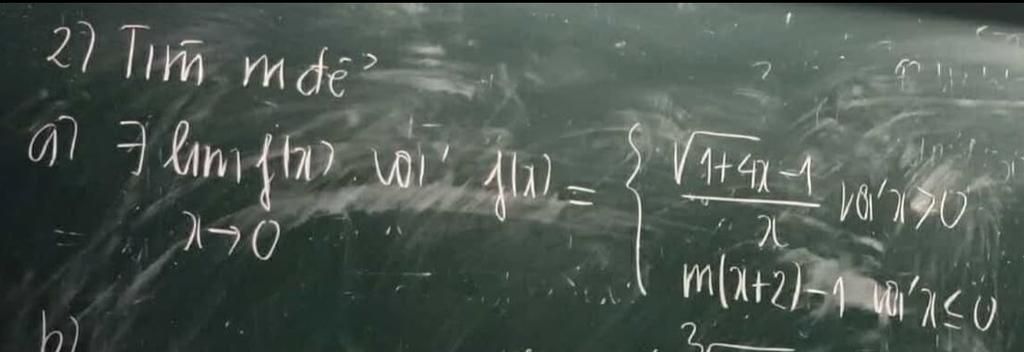 2) Tìm m để
a) ∃ lim f(x) với f(x) = { (√(1+4x) - 1)/x với x > 0
x→0
m(x+2) - 1 với x ≤ 0
b)
3√